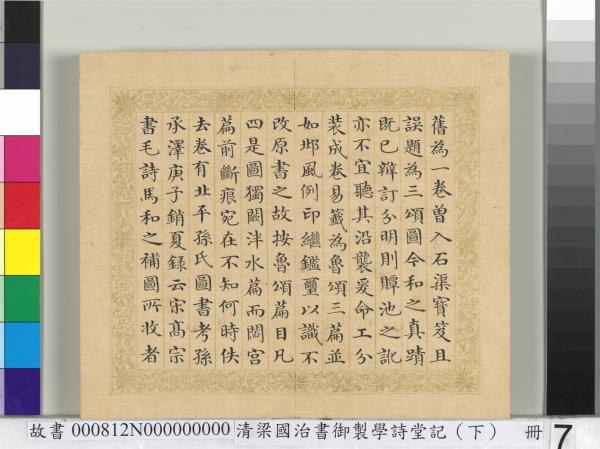 舊為一卷曾入石渠寶笈且
誤題為三頌圖今和之真蹟
既已辯訂分明則贉池之訛
亦不宜聽其沿襲爰命工分
裝成卷易籤為魯頌三篇並
如邶風例印繼鑑璽以識不
改原書之故按魯頌篇目凡
四是圖獨闕泮水篇而閟宮
篇前斷痕宛在不知何時佚
去卷有北平孫氏圖書考孫
承澤庚子銷夏録云宗髙宗
書毛詩馬和之補圖所收者
故書 000812N000000000 清梁國治書御製學詩堂記（下） 冊 7